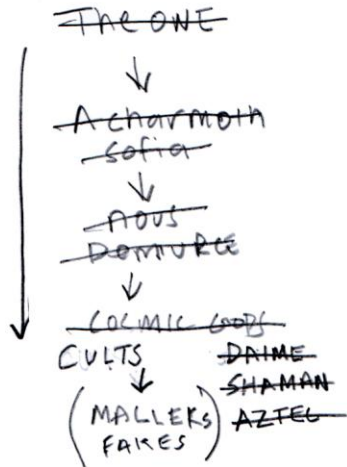 The ONE
Acharmoth
Sofia
NOUS
DEMIURGE
COSMIC GODS
CULTS DAIME
SHAMAN
(MALLERS AZTEC
FAKES)